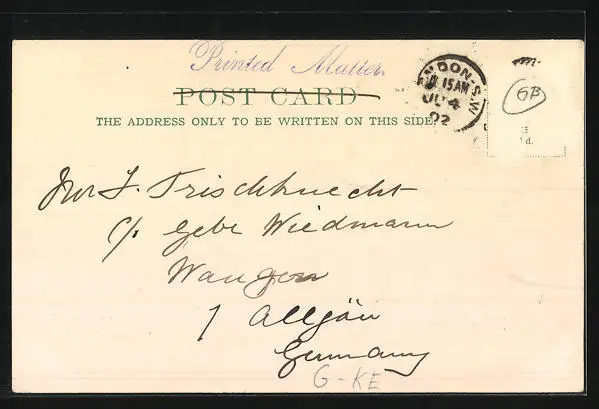 Printed Matter.
POST CARD
THE ADDRESS ONLY TO BE WRITTEN ON THIS SIDE.
NDON.S.W
15AM
JU 4
02
GB
d.
Mr F. Frischknecht
c/o Gebr Wiedmann
Wangen
/ Allgäu
Germany
G-KE